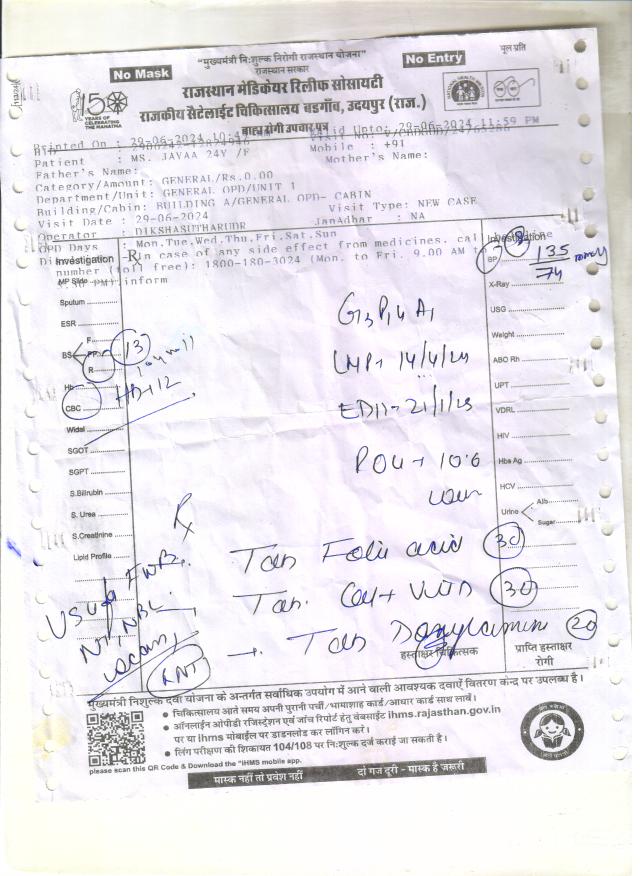 "मुख्यमंत्री निःशुल्क निरोगी राजस्थान योजना"
राजस्थान सरकार
मूल प्रति
No Mask
No Entry
राजस्थान मेडिकेयर रिलीफ सोसायटी
राजकीय सैटेलाईट चिकित्सालय बडगाँव, उदयपुर (राज.)
150
YEARS OF
CELEBRATING
THE MAHATMA
बाह्य रोगी उपचार पत्र
Printed On : 29-06-2024
Valid Upto: 29-06-2024 11:59 PM
Patient : MS. JAYAA 24Y /F
Mobile : +91
Father's Name:
Mother's Name:
Category/Amount: GENERAL/Rs.0.00
Department/Unit: GENERAL OPD/UNIT 1
Building/Cabin: BUILDING A/GENERAL OPD- CABIN
Visit Date : 29-06-2024
Visit Type: NEW CASE
Operator : DIKSHASUTHARUDR
JanAadhar : NA
OPD Days : Mon.Tue.Wed.Thu.Fri.Sat.Sun
In case of any side effect from medicines. call
number (toll free): 1800-180-3024 (Mon. to Fri. 9.00 AM to
PM) inform
Investigation
Rx
Investigation
MP Slide
BP 135
74
X-Ray
Sputum
USG
ESR
Weight
F
BS PP
R
ABO Rh
UPT
Hb 12
CBC
VDRL
Widal
HIV
SGOT
Hbs Ag
SGPT
HCV
S.Bilirubin
Urine Alb.
Sugar
S. Urea
S.Creatinine
Lipid Profile
LMP 14/4/24
EDD 21/1/25
POG 10.6
Rx
Tab Folic acid 30
Tab. Cal + Vit D 30
Tab Doxylamine 20
USG
NT, NBL
scan
हस्ताक्षर चिकित्सक
प्राप्ति हस्ताक्षर
रोगी
मुख्यमंत्री निशुल्क दवा योजना के अन्तर्गत सर्वाधिक उपयोग में आने वाली आवश्यक दवाऐं वितरण केन्द्र पर उपलब्ध है।
• चिकित्सालय आते समय अपनी पुरानी पर्ची/भामाशाह कार्ड/आधार कार्ड साथ लावें।
• ऑनलाईन ओपीडी रजिस्ट्रेशन एवं जांच रिपोर्ट हेतु वेबसाईट ihms.rajasthan.gov.in
पर या ihms मोबाईल पर डाउनलोड कर लॉगिन करें।
• लिंग परीक्षण की शिकायत 104/108 पर निःशुल्क दर्ज कराई जा सकती है।
please scan this QR Code & Download the "IHMS mobile app.
मास्क नहीं तो प्रवेश नहीं
दो गज दूरी - मास्क है जरूरी